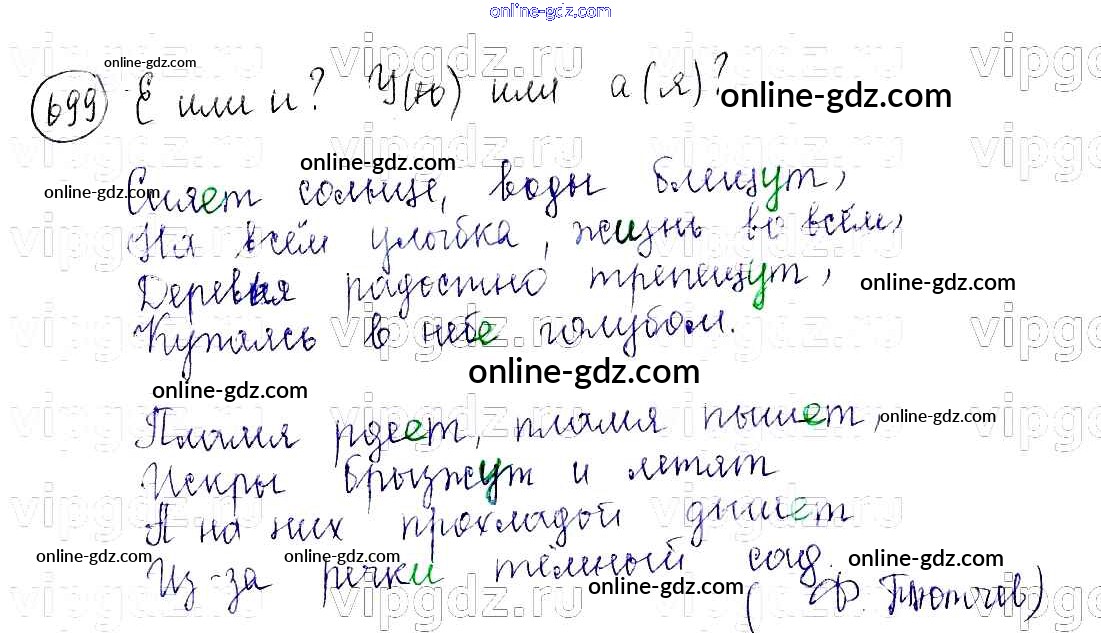 online-gdz.com
online-gdz.com
699 Е или и? У(ю) или а(я)?
online-gdz.com
online-gdz.com
online-gdz.com
Сияет солнце, воды блещут,
На всём улыбка, жизнь во всём,
Деревья радостно трепещут,
online-gdz.com
Купаясь в небе голубом.
online-gdz.com
online-gdz.com
Пламя рдеет, пламя пышет,
online-gdz.com
Искры брызжут и летят
А на них прохладой дышет
online-gdz.com online-gdz.com online-gdz.com
Из-за речки тёмный сад.
online-gdz.com
(Ф. Тютчев)
vipgdz.ru vipgdz.ru vipgdz.ru vipgdz.ru